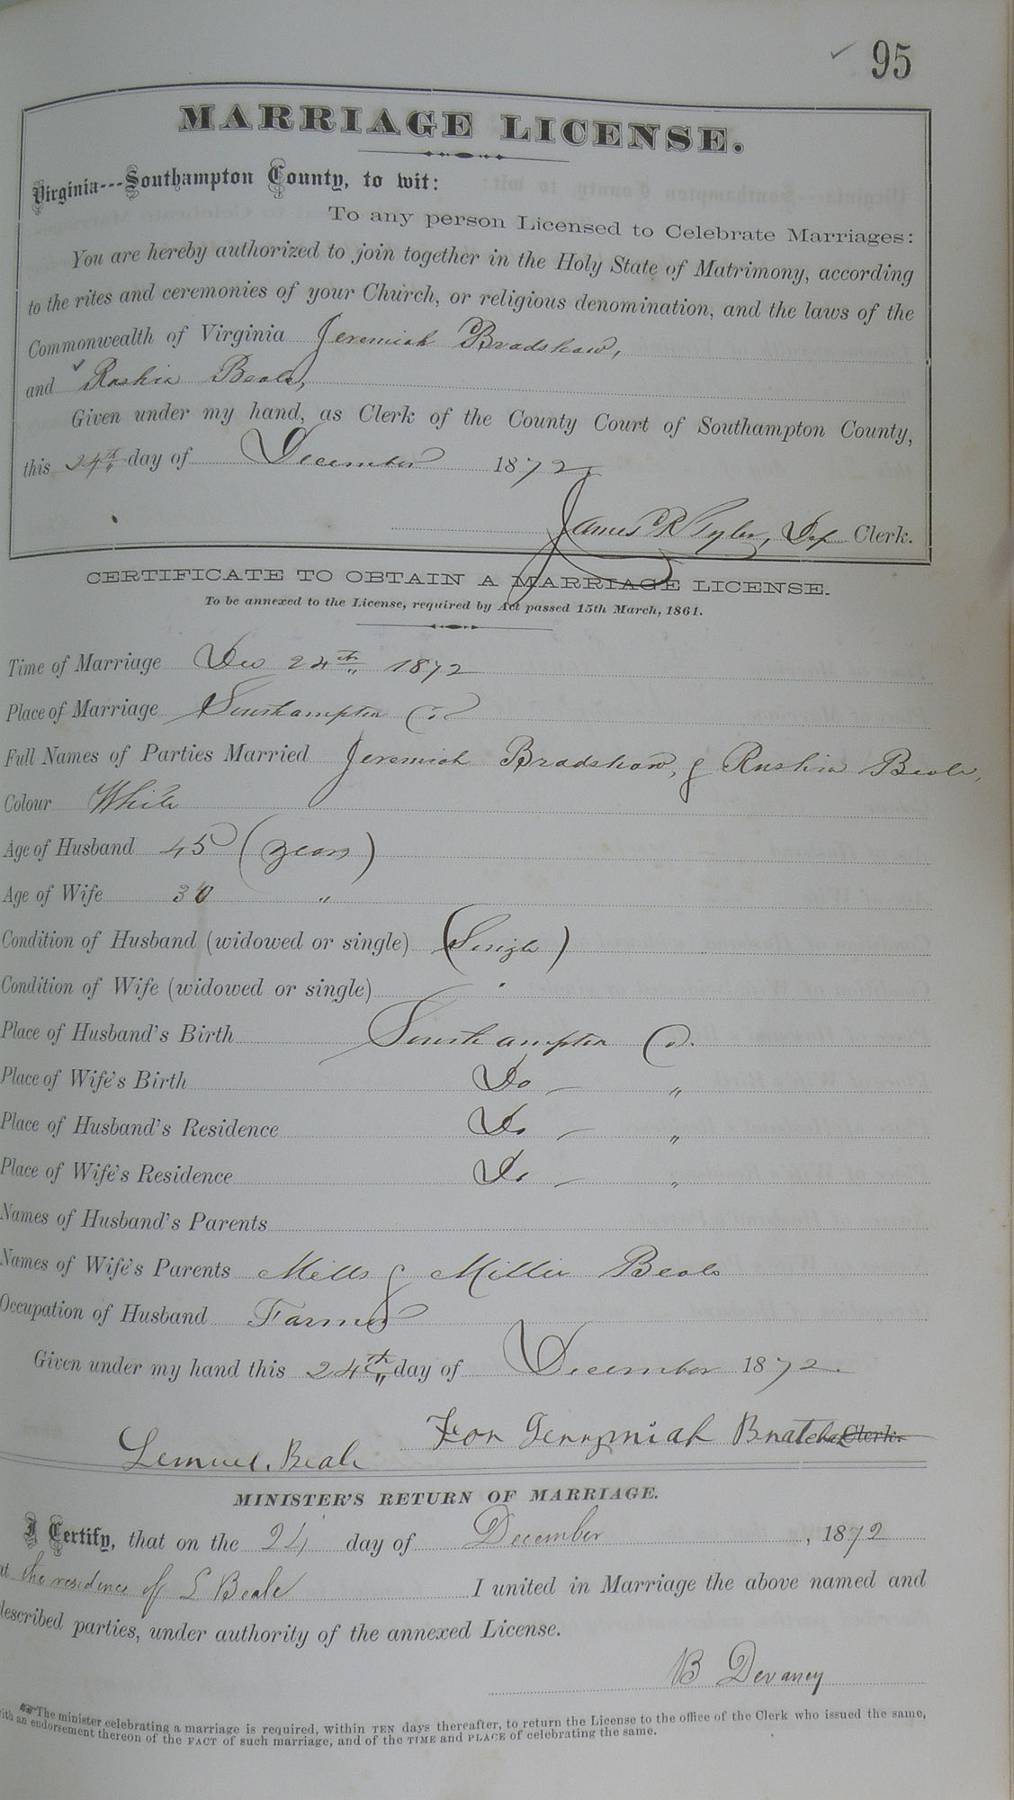 95
MARRIAGE LICENSE.
Virginia---Southampton County, to wit:
To any person Licensed to Celebrate Marriages:
You are hereby authorized to join together in the Holy State of Matrimony, according
to the rites and ceremonies of your Church, or religious denomination, and the laws of the
Commonwealth of Virginia Jeremiah Bradshaw,
and Rashia Beale,
Given under my hand, as Clerk of the County Court of Southampton County,
this 24th day of December 1872
James R Tyler, Dep Clerk.
CERTIFICATE TO OBTAIN A MARRIAGE LICENSE.
To be annexed to the License, required by Act passed 15th March, 1861.
Time of Marriage Dec 24th 1872
Place of Marriage Southampton Co
Full Names of Parties Married Jeremiah Bradshaw, & Beale,
Colour White
Age of Husband 45 (years)
Age of Wife 30 "
Condition of Husband (widowed or single) (Single)
Condition of Wife (widowed or single) "
Place of Husband's Birth Southampton Co.
Place of Wife's Birth Do — "
Place of Husband's Residence Do — "
Place of Wife's Residence Do — "
Names of Husband's Parents
Names of Wife's Parents Mills & Millie Beale
Occupation of Husband Farmer
Given under my hand this 24th day of December 1872.
For Jeremiah Clerk.
Lemuel. Beale
MINISTER'S RETURN OF MARRIAGE.
I Certify, that on the 24 day of December, 1872
at the residence of L Beale I united in Marriage the above named and
described parties, under authority of the annexed License.
B Devaney
The minister celebrating a marriage is required, within TEN days thereafter, to return the License to the office of the Clerk who issued the same,
with an endorsement thereon of the FACT of such marriage, and of the TIME and PLACE of celebrating the same.